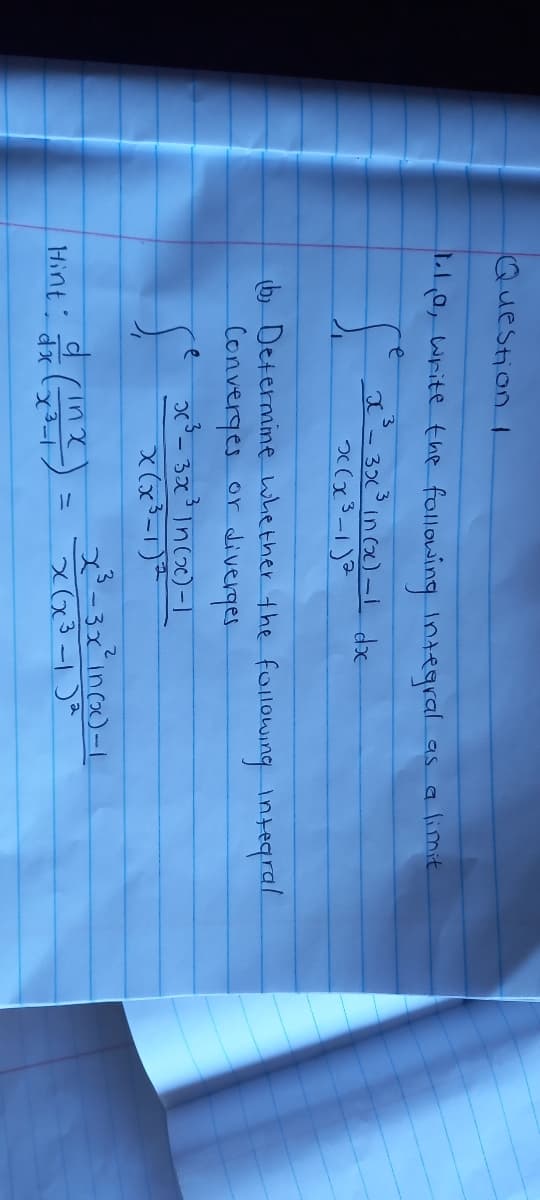 Question 1
1.1 a, write the following integral as a limit
∫₁ᵉ (x³ - 3x³ ln(x) - 1) / (x(x³-1)²) dx
(b) Determine whether the following integral
Converges or diverges
∫₁ᵉ (x³ - 3x³ ln(x) - 1) / (x(x³-1)²)
Hint: d/dx (ln x / (x³-1)) = (x³ - 3x² ln(x) - 1) / (x(x³-1)²)